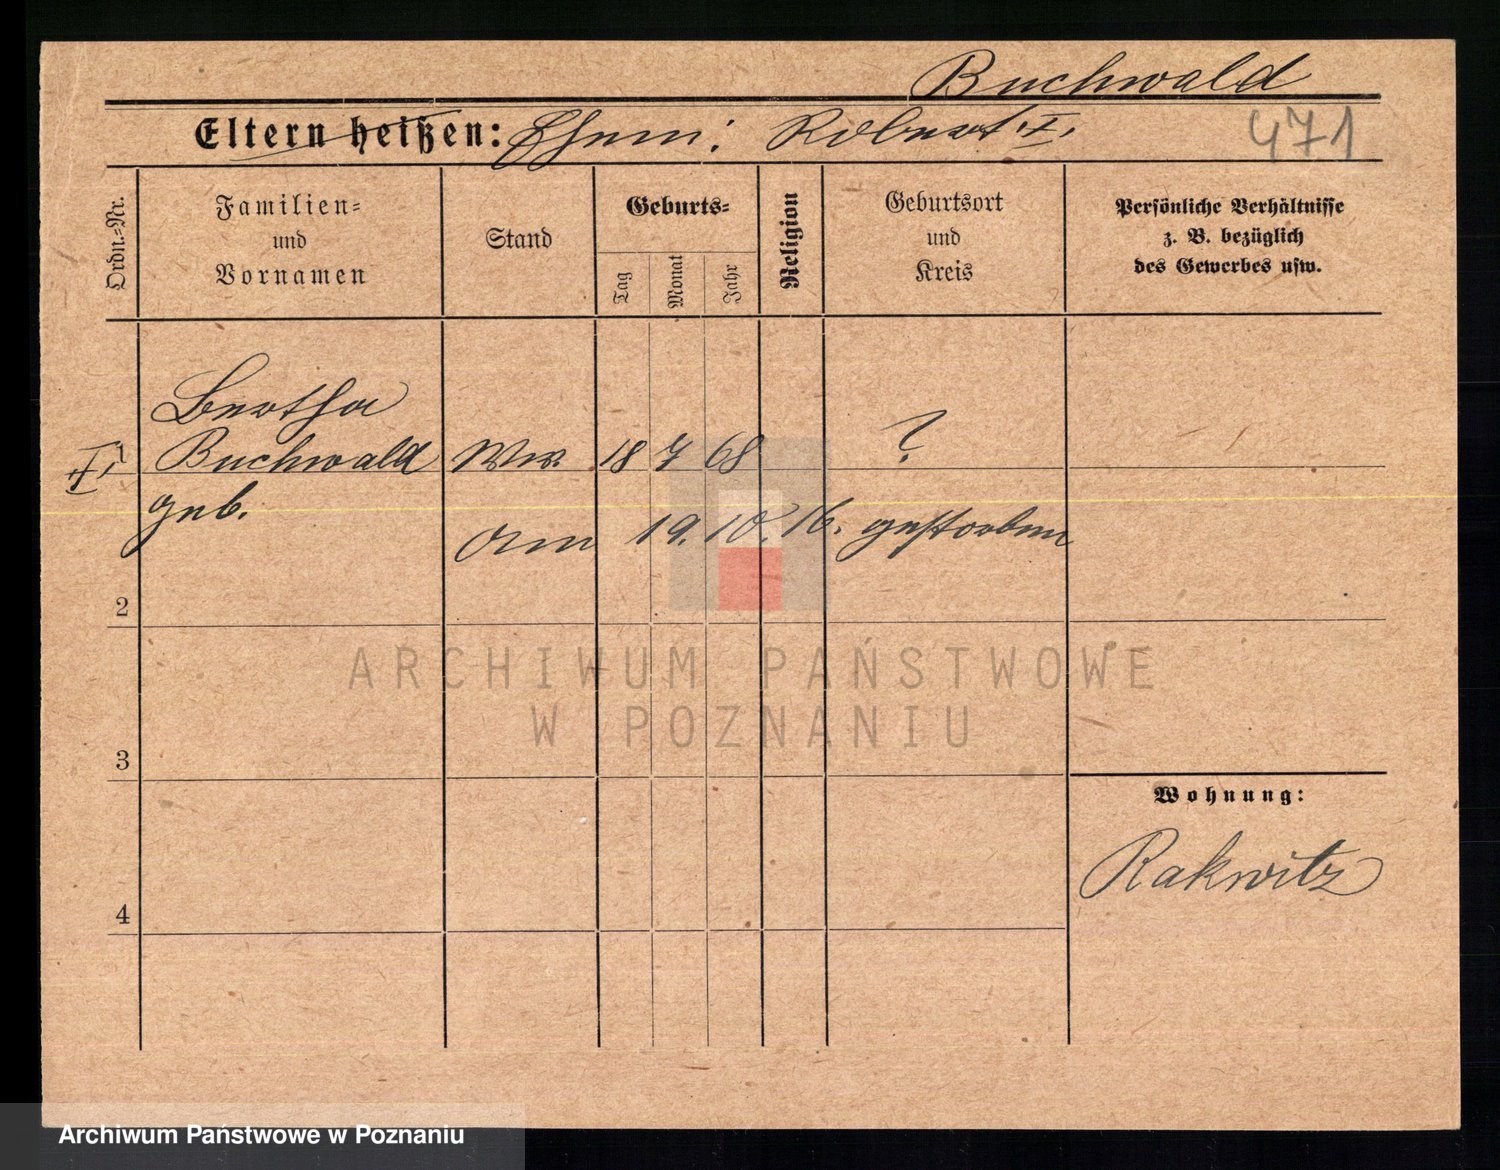 Buchwald
Eltern heißen: Ehem: Robert † I.
471
Ordn.=Nr.
Familien=
und
Vornamen
Stand
Geburts=
Tag
Monat
Jahr
Religion
Geburtsort
und
Kreis
Persönliche Verhältnisse
z. B. bezüglich
des Gewerbes usw.
Bertha
1 Buchwald Ww. 18 7 68 ?
geb.
Am 19. 10. 16. gestorben
2
3
4
Wohnung:
Rakwitz
ARCHIWUM PAŃSTWOWE
W POZNANIU
Archiwum Państwowe w Poznaniu